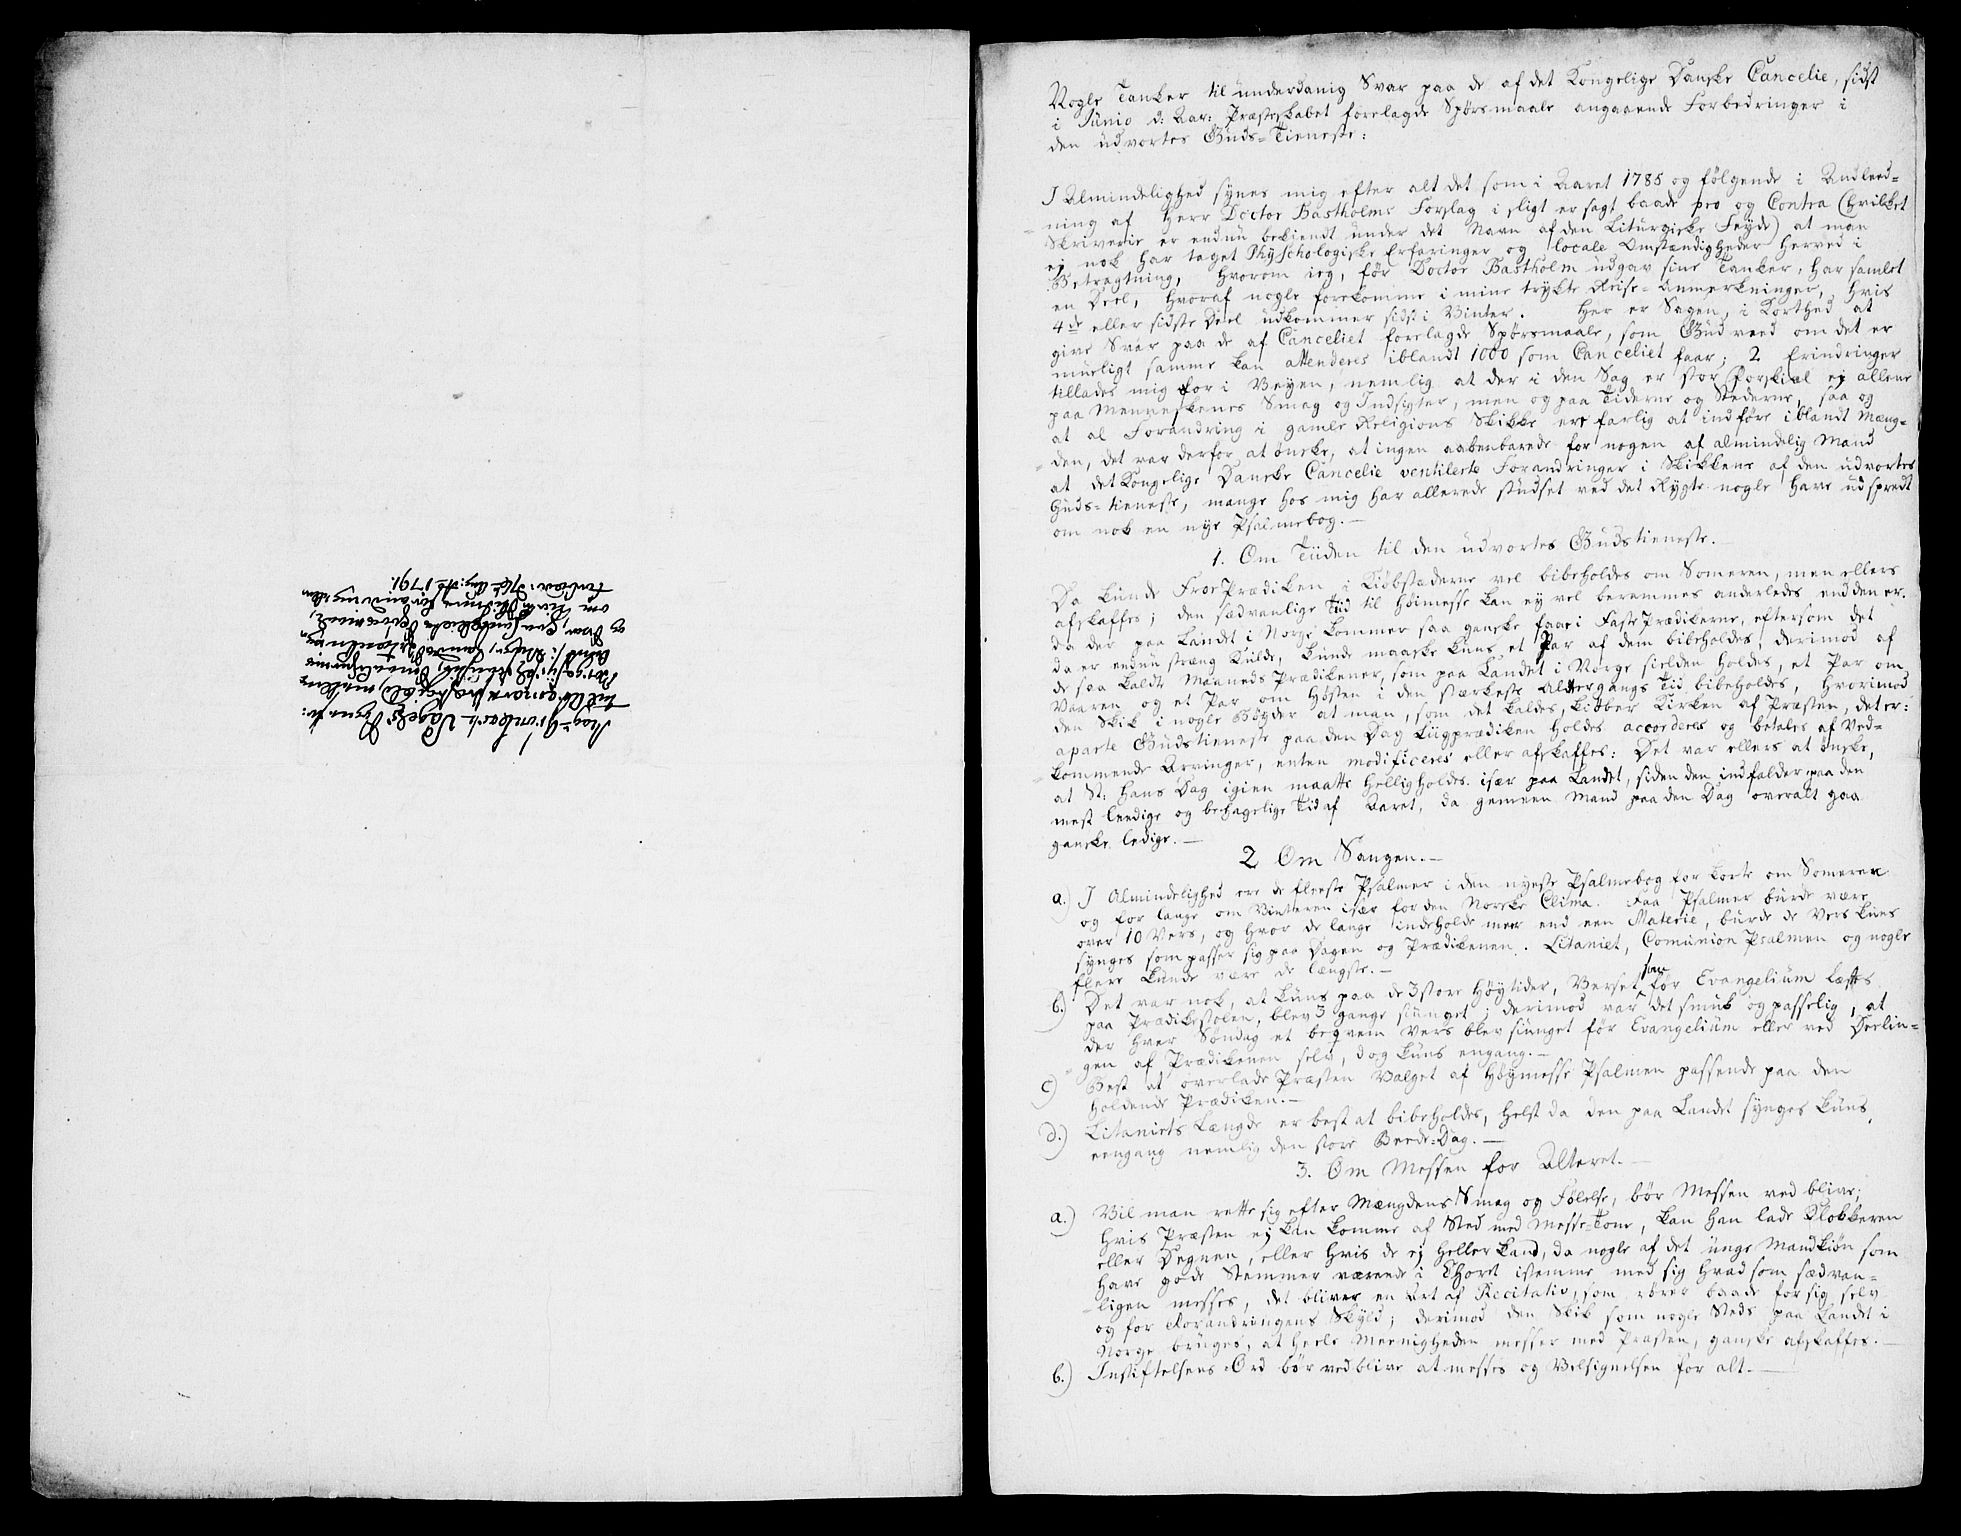 Nogle Tanker til underdanig Svar paa de af det Kongelige Danske Cancelie, sidst
i Junio d: Aar: Præsteskabet forelagde Spørsmaale angaaende Forbedringer i
den udvortes Guds-Tieneste:
I Almindelighed synes mig efter alt det som i Aaret 1785 og følgende i Andleed-
ning af Herr Doctor Bastholms Forslag i sligt er sagt baade pro og Contra (hvilket
Skriverie er endnu bekiendt under det Navn af den Liturgiske Feyde) at man
ej nok har taget Physchologiske Erfaringer og locale Omstændigheder herved i
Betragtning, hvorom ieg, før Doctor Bastholm udgav sine Tanker, har samlet
en Deel, hvoraf nogle forekomme i mine trykte Reise-Anmerkninger, hvis
4de eller sidste Deel udkommer sidst i Vinter. Her er Sagen, i Korthed at
give Svar paa de af Canceliet forelagde Spørsmaale, som Gud veed om det er
mueligt samme kan attenderes iblandt 1000 som Canceliet faar; 2 Erindringer
tillades mig for i Veyen, nemlig at der i den Sag er stor Forskiæl ej allene
paa Menneskenes Smag og Indsigter, men og paa Tiderne og Stederne, saa og
at al Forandring i gamle Religions Skikke er farlig at indføre iblandt Mæng-
den, det var derfor at ønske, at ingen aabenbarede for nogen af almindelig Mand
at det Kongelige Danske Cancelie ventilerte Forandringer i Skikkene af den udvortes
Guds-tieneste, mange hos mig har allerede studset ved det Rygte nogle have udspredt
om nok en nye Psalmebog.—
1. Om Tiiden til den udvortes Gudstieneste.—
Da kunde Froe Prædiken i Kiøbstæderne vel bibeholdes om Someren, men ellers
afskaffes; den sædvanlige Tiid til Høimesse kan ey vel berammes anderledes end den er.
da der paa Landet i Norge kommer saa ganske faae i Faste Prædikerne, eftersom det
da er endnu stræng Kulde, kunde maaske kuns et Par af dem bibeholdes, derimod af
de saa kaldte Maaneds Prædikener, som paa Landet i Norge sielden holdes, et Par om
Vaaren og et Par om Høsten i den stærkeste Altergangs Tid bibeholdes, hvorimod
den Skik i nogle Bøyder at man, som det kaldes, kiøber Kirken af Præsten, det er:
aparte Gudstieneste paa den Dag Liigprædiken holdes accorderes og betales af Ved-
kommende Arvinger, enten modificeres eller afskaffes: Det var ellers at ønske,
at St: Hans Dag igien maatte helligholdes. især paa Landet, siden den indfalder paa den
mest leedige og behagelige Tid af Aaret, da gemeen Mand paa den Dag overalt gaa
ganske ledige.—
2 Om Sangen.—
a.) I Almindelighed ere de fleeste Psalmer i den nyeste Psalmebog for korte om Someren
og for lange om Vinteren især for den Norske Clima. Faa Psalmer burde være
over 10 Vers, og hvor de lange indeholde meer end een Materie, burde de Vers kuns
synges som passer sig paa Dagen og Prædikenen. Litaniet, Comunion Psalmen og nogle
flere kunde være de længste.—
b.) Det var nok, at kuns paa de 3 store Høytider, Verset som før Evangelium læstes
paa Prædikestolen, blev 3 gange siunget; derimod var det smuk og passelig, at
der hver Søndag et beqvem Vers blev siunget før Evangelium eller ved Deelin-
gen af Prædikenen selv, dog kuns engang.—
c) Best at overlade Præsten Valget af Høymesse Psalmen passende paa den
holdende Prædiken.—
d.) Litaniets Længde er best at bibeholdes, helst da den paa Landet synges kuns
eengang nemlig den store Beede-Dag.—
3. Om Messen for Alteret.—
a.) Vil man rette sig efter Mængdens Smag og Følelse, bør Messen ved blive;
hvis Præsten ej kan komme af Sted med Messe-Tone, kan han lade Klokkeren
eller Degnen, eller hvis de ej heller kand, da nogle af det unge Mandkiøn som
have gode Stemmer værende i Choret istemme med sig hvad som sædvan-
ligen messes, det bliver en Art af Recitativ, som rører baade for sig selv
og for Forandringens Skyld; derimod den Skik som nogle Steds paa Landet i
Norge bruges, at heele Meenigheden messer med Præsten, ganske afskaffes.—
b.) Instiftelsens Ord bør vedblive at messes og Velsignelsen for alt.—